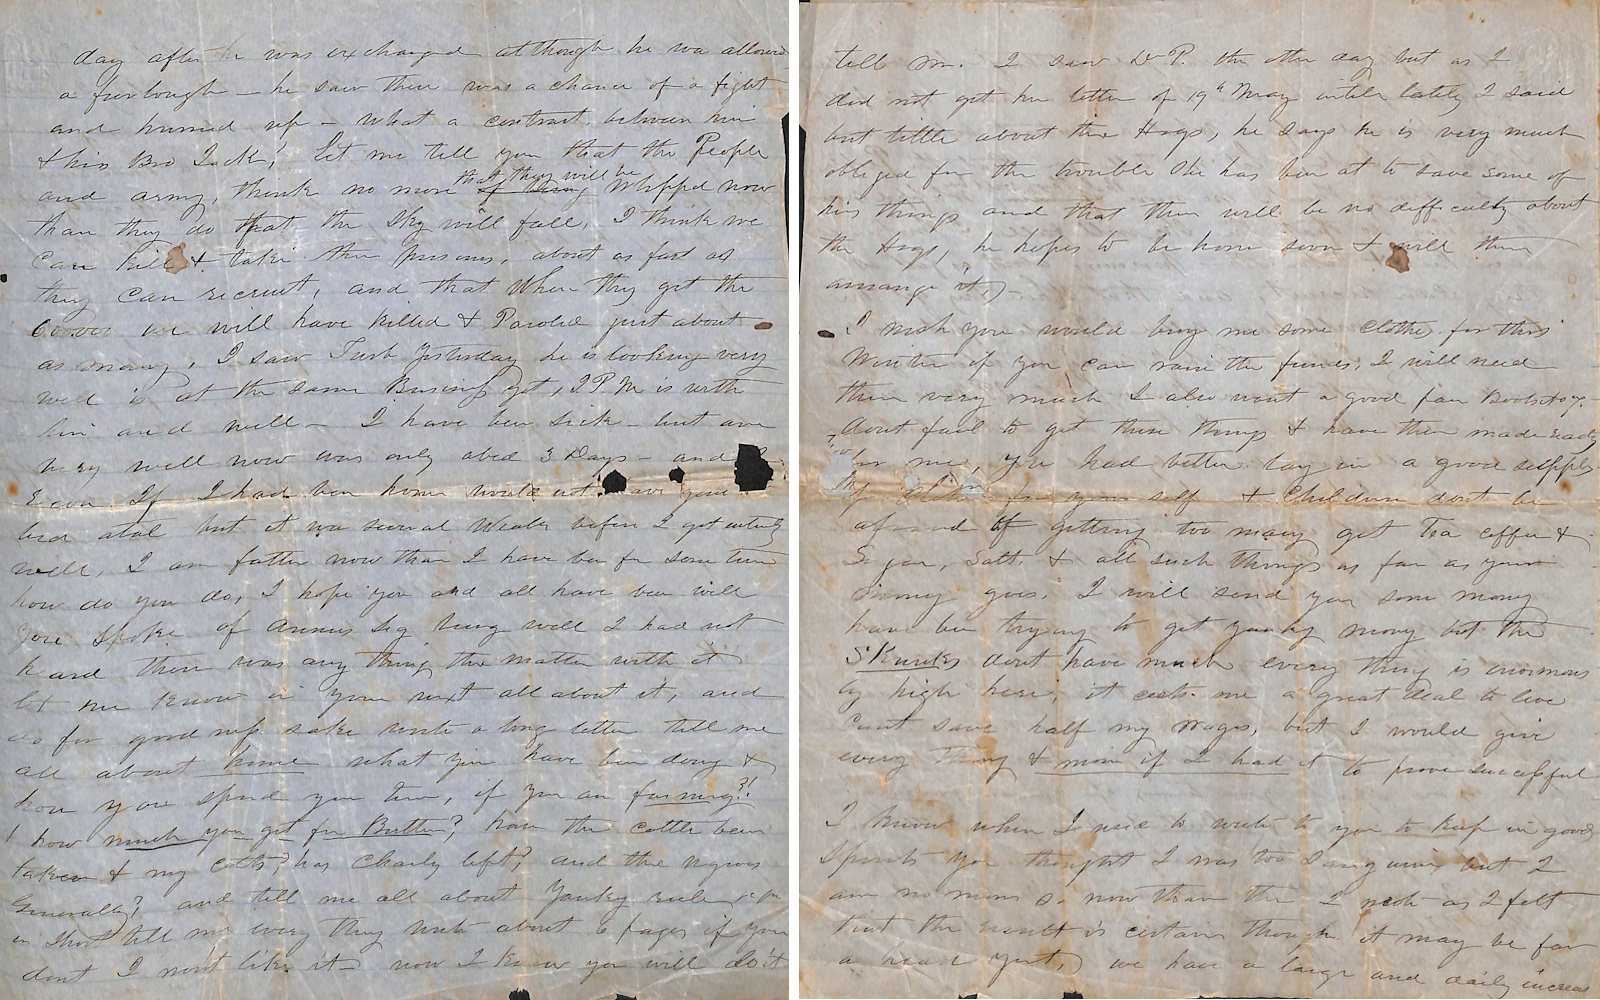 day after he was exchanged although he wa allowed
a furlough – he saw there was a chance of a fight
and hurried up – what a contrast, between him
& his Bro Jack! Let me tell you that the People
and army, think no more that they will be Whipped now
than they do that the Sky will fall, I think we
can kill & take them prisons, about as fast as
they can recruit, and that When they get the
600000 we will have killed & Paroled just about
as many, I saw Turk Yesterday he is looking very
well is at the same Business yet, J.P.M. is with
him and well – I have ben sick – but am
very well now was only abed 3 Days – and
Even If I had ben home would not have gone
bed atal but it wa several Weeks before I got entirely
well, I am fatter now than I have ben for some time
how do you do, I hope you and all have ben well
You spoke of Annies leg being well I had not
heard there was any thing the matter with it
let me know in your next all about it, and
do for good ness sake write a long letter tell me
all about home what you have ben doing &
how you spend your time, if you are farming?!
& how much you get for Butter? have the cattle been
taken & my colts? has Charly left? and the negroes
Generally? and tell me all about Yanky rule
in short tell me every thing write about 6 pages if you
dont I wont like it – now I know you will do it
tell me. I saw Dr P. the other day but as I
did not get her letter of 19th May until lately I said
but little about the Hogs, he says he is very much
obliged for the trouble She has ben at to save some of
his things and that there will be no difficulty about
the Hogs, he hopes to be home soon & will then
arrange it)
I wish you would buy me some clothes for this
Winter if you can raise the funds, I will need
them very much I also want a good pair Boots
dont fail to get these things & have them made ready
for me, you had better lay in a good supply
of clothes for your self & Children dont be
afraid of getting too many get Tea coffee &
Sugar, Salt, & all such things as far as your
money goes. I will send you some money
have ben trying to get Yanky money but the
Skunks dont have much every thing is enormous
ly high here, it costs me a great deal to live
cant save half my wages, but I would give
every thing & more if I had it to prove successful
I know when I used to write to you to keep in good
spirits you thought I was too Sanguine but I
am no more so now than then I write as I felt
that the result is certain though it may be far
a head yet, we have a large and daily increas